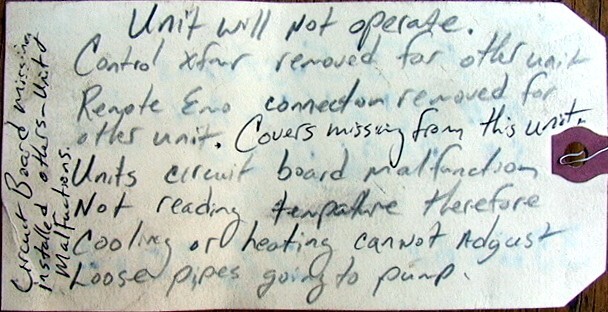 Unit will not operate.
Control xfmr removed for other unit
Remote Emo connection removed for
other unit. Covers missing from this unit.
Units circuit board malfunction
Not reading tempature therefore
Cooling or heating cannot Adjust
Loose pipes going to pump.
Circuit Board missing
installed others - Unit
Malfuctions.